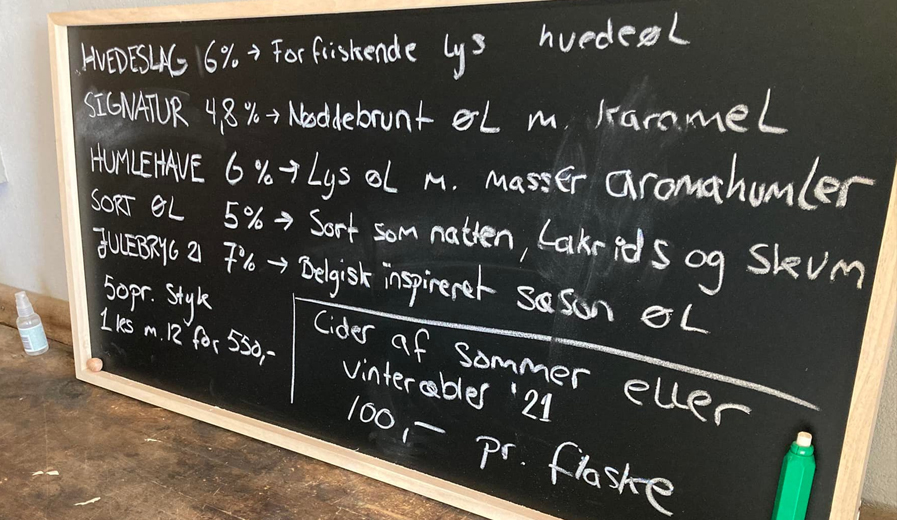 HVEDESLAG 6% → Forfriskende lys hvedeøl
SIGNATUR 4,8% → Nøddebrunt øl m. karamel
HUMLEHAVE 6% → Lys øl m. masser aromahumler
SORT ØL 5% → Sort som natten, Lakrids og skum
JULEBRYG 21 7% → Belgisk inspireret sæson øl
50 pr. styk
1 ks m. 12 for 550,-
Cider af sommer eller
vinteræbler '21
100,- pr. flaske